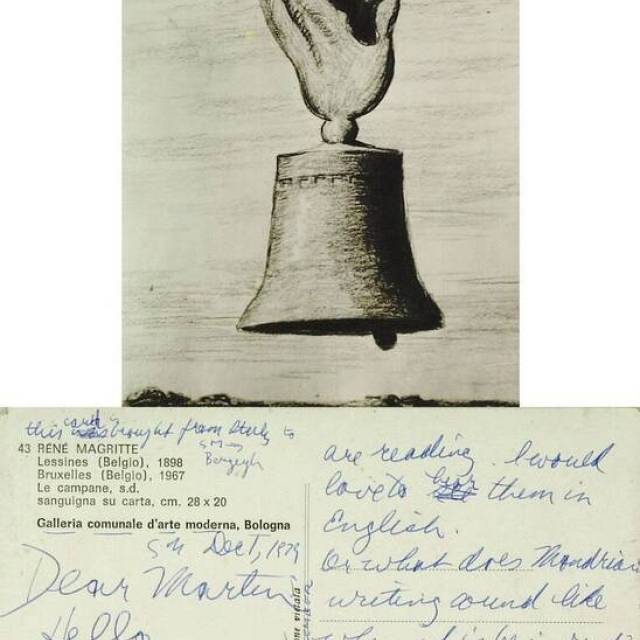 this card brought from Italy to
43 RENÉ MAGRITTE
Lessines (Belgio), 1898
Bruxelles (Belgio), 1967
Le campane, s.d.
sanguigna su carta, cm. 28 x 20
Galleria comunale d'arte moderna, Bologna
Dear Martin
Hello
are reading. I would
love to hear them in
English.
Or what does Mondrian
writing sound like